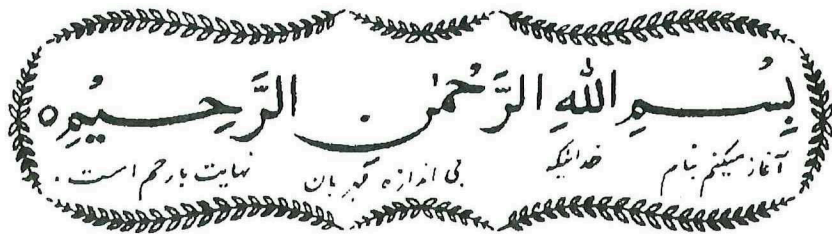 بِسْمِ اللّٰهِ الرَّحْمٰنِ الرَّحِيْمِ ○
آغاز میکنم بنام خدائیکه بی اندازه مهربان نهایت بارحم است .